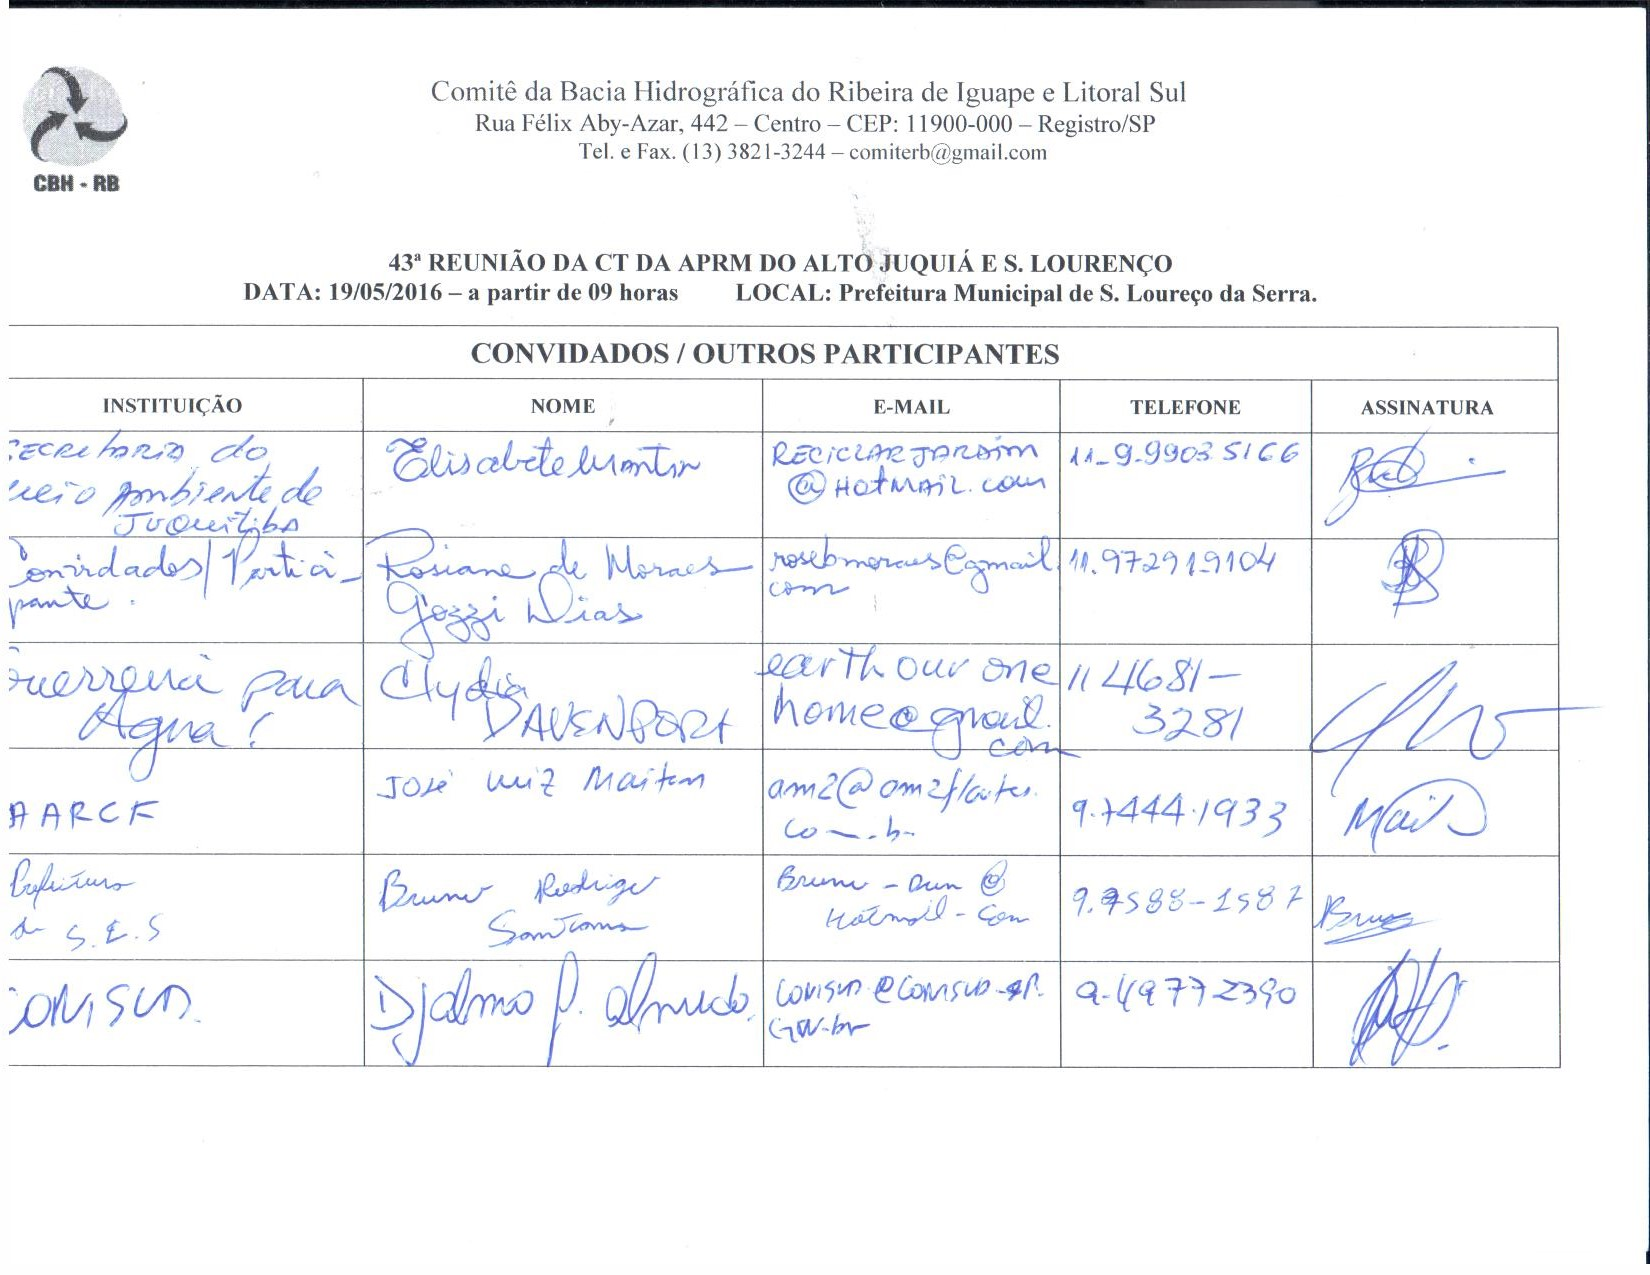 CBH - RB
Comitê da Bacia Hidrográfica do Ribeira de Iguape e Litoral Sul
Rua Félix Aby-Azar, 442 – Centro – CEP: 11900-000 – Registro/SP
Tel. e Fax. (13) 3821-3244 – comiterb@gmail.com
43ª REUNIÃO DA CT DA APRM DO ALTO JUQUIÁ E S. LOURENÇO
DATA: 19/05/2016 – a partir de 09 horas LOCAL: Prefeitura Municipal de S. Loureço da Serra.
CONVIDADOS / OUTROS PARTICIPANTES
INSTITUIÇÃO NOME E-MAIL TELEFONE ASSINATURA
do
Ambiente de
Juquitiba
Elisabete Martin
RECICLARJARDIM
@HOTMAIL.com
11-9-99035166
Convidados/Partici-
pante.
Rosiane de Moraes
Gozzi Dias
rosebmoraes@gmail.
com
11.972919104
Guerreira para
Agua!
Clydia
DAVENPORT
earth our one
home@gmail.
com
11 4681-
3281
AARCF
José Luiz
9.7444.1933
Prefeitura
de S.L.S
Bruno Rodrigo
Santana
Hotmail-Com
9.7588-1587
CONISUD
Djalma P.
conisud@conisud.sp.
gov.br
9-49772390